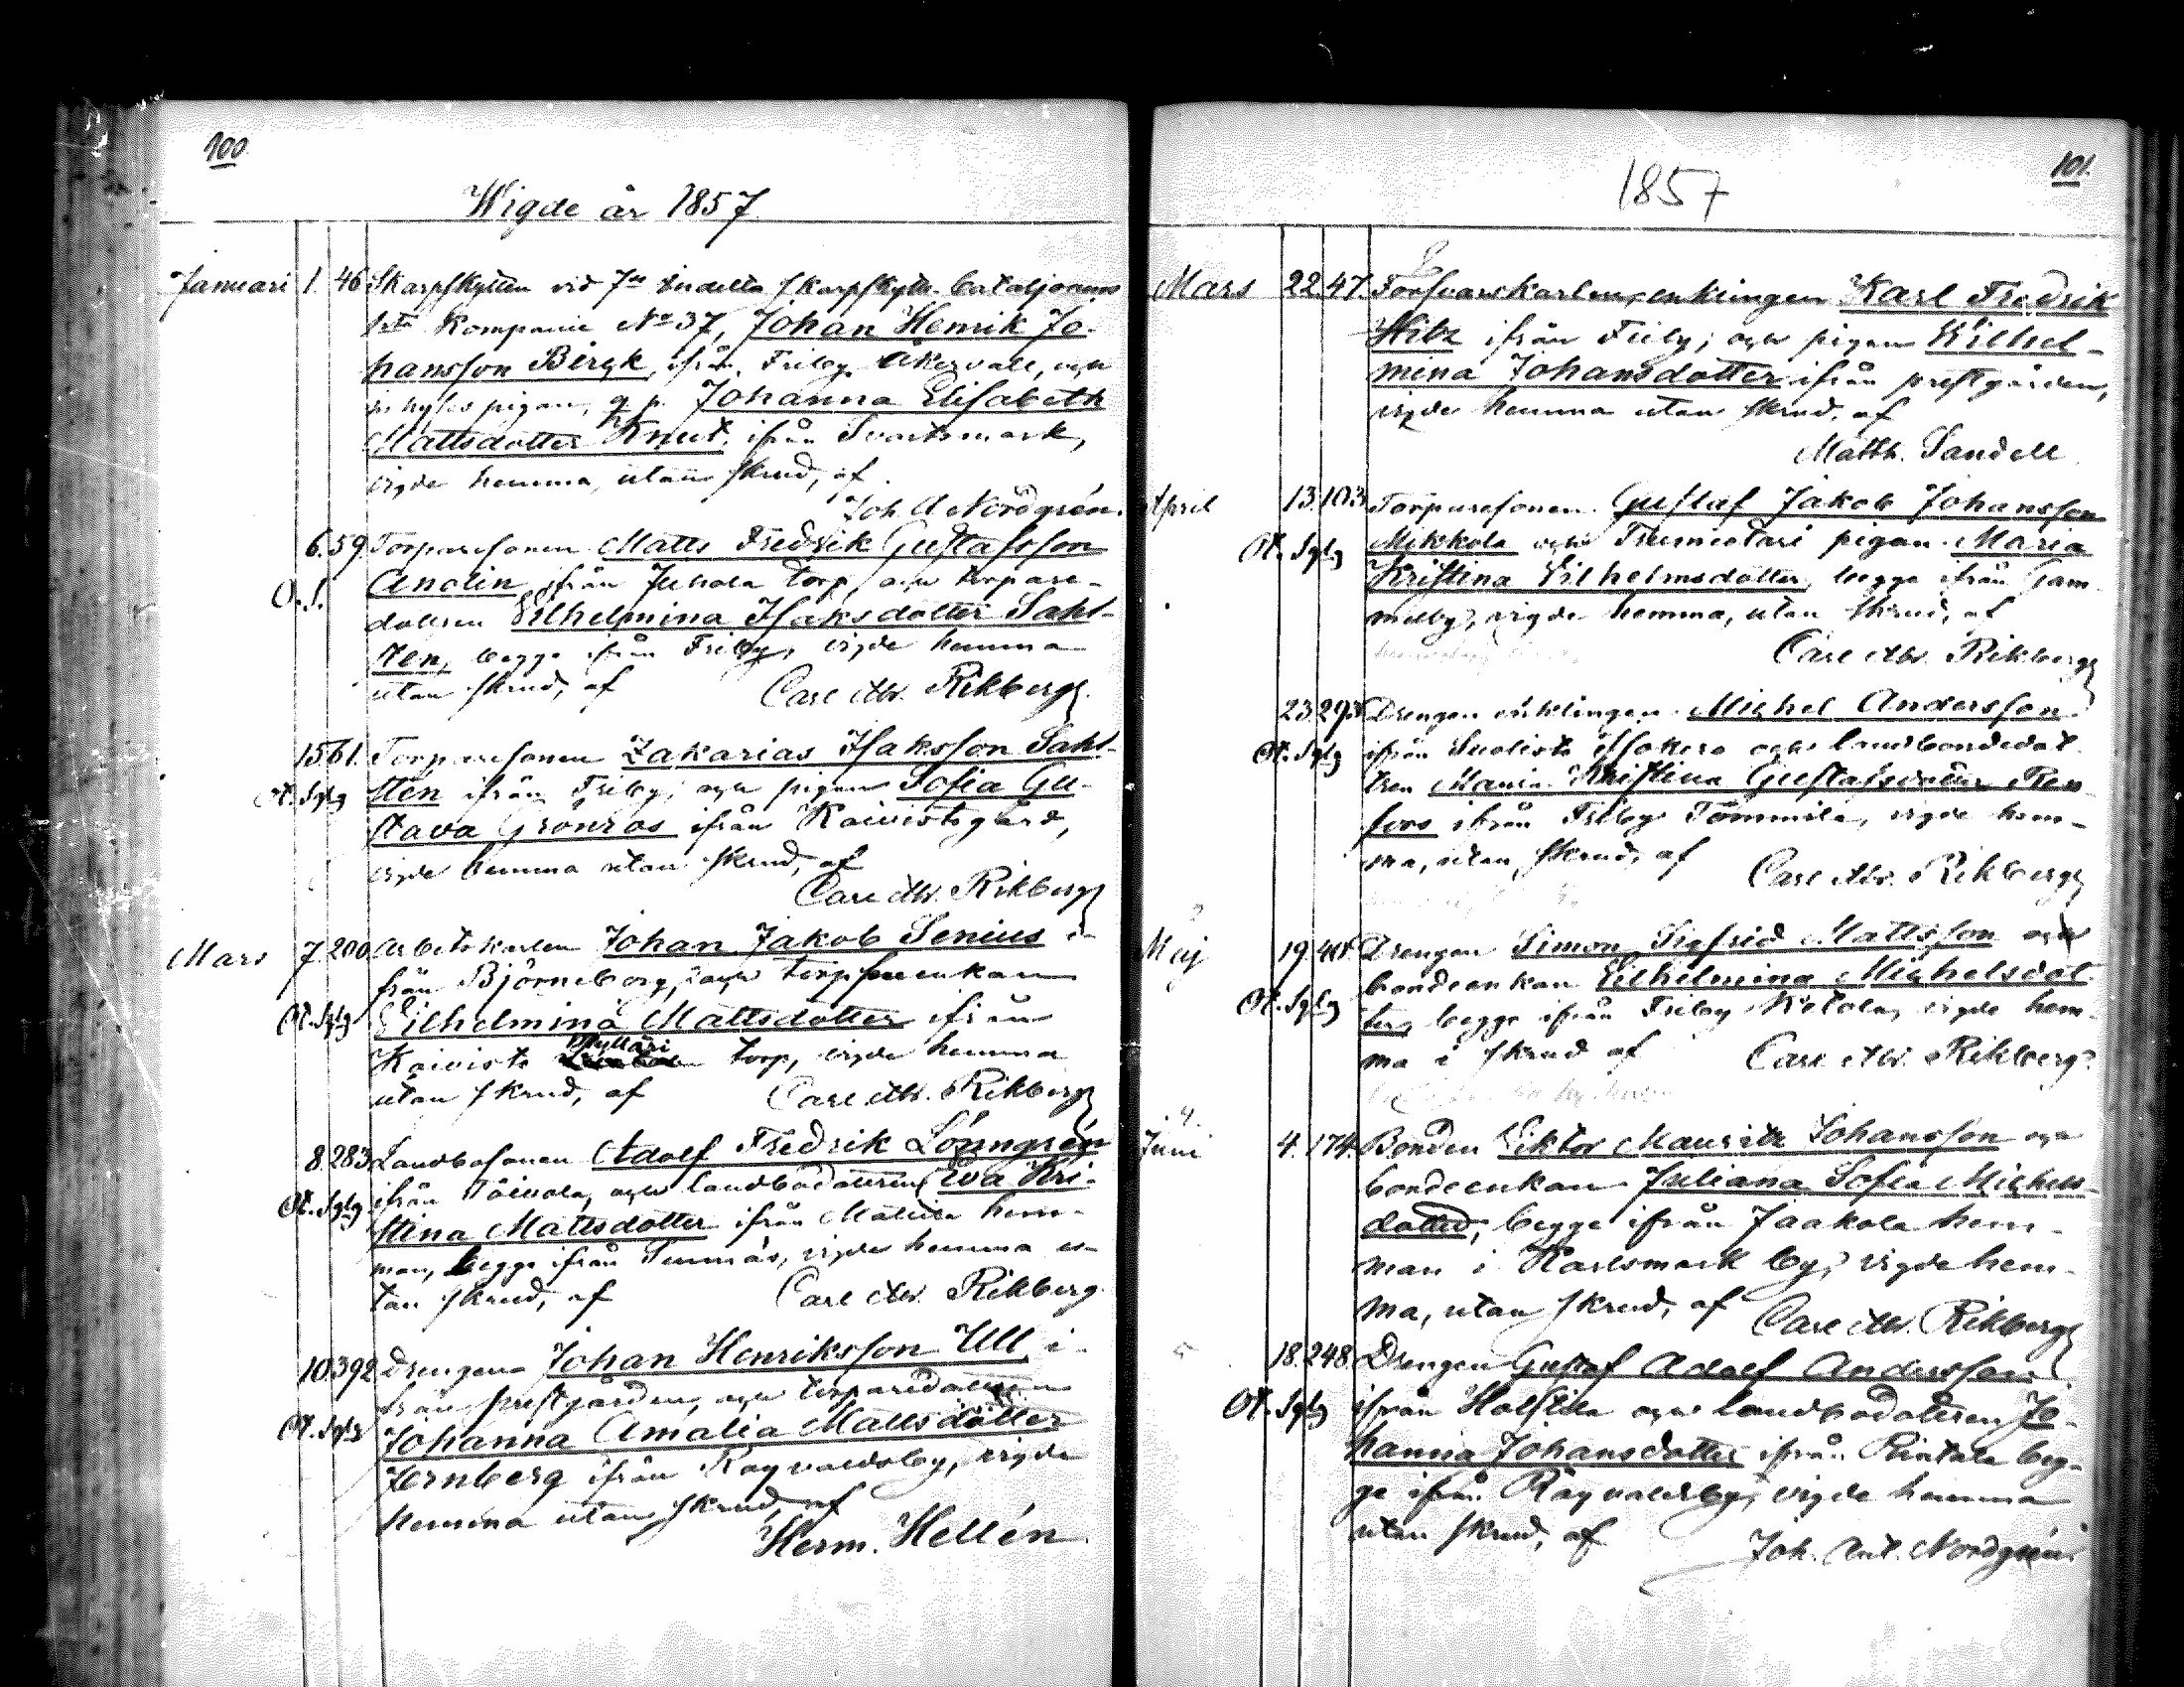 100.
Wigde år 1857.
Januari 1. 46 Skarpskytten vid 7de indelta skarpskytte bataljonens
1sta Kompanie No 37, Johan Henrik Jo-
hansson Birgk, ifrån Friby Åkervall, och
pigan, q. p. Johanna Elisabeth
Mattsdotter Knut, ifrån Svartsmark,
vigde hemma, utan skrud, af
Joh. A Nordgrén.
6. 59. Torparesonen Matts Fredrik Gustafsson
O. S. Anolin, ifrån Juhola torp, och torpare-
dottren Vilhelmina Isaksdotter Sahl-
sten, begge ifrån Friby, vigde hemma
utan skrud, af Carl Abr. Rikberg.
15. 61. Torparesonen Zakarias Isaksson Sahl-
Ot. Sglg sten ifrån Friby, och pigan Sofia Gu-
stava Grönros ifrån Koivistogård,
vigde hemma utan skrud, af
Carl Abr. Rikberg
Mars 7. 200. Arbetskarlen Johan Jakob Senius i-
från Björneborg, och torpareenkan
Ot. Sglg Vilhelmina Mattsdotter ifrån
Koivisto Mylläri torp, vigde hemma
utan skrud, af Carl Abr. Rikberg
8. 283. Landbosonen Adolf Fredrik Lönngrén
Ot. Sglg ifrån Toivola, och landbodottren Eva Kri-
stina Mattsdotter ifrån Mattila hem-
man, begge ifrån Sunnäs, vigde hemma u-
tan skrud, af Carl Abr. Rikberg.
10. 392 Drengen Johan Henriksson Ull i-
från prestgården, och torparedottren
Ot. Sglg Johanna Amalia Mattsdotter
Jernberg ifrån Ragvaldsby, vigde
hemma utan skrud, af
Herm. Hellén.
101.
1857
Mars 22. 47. Försvarskarlen, enklingen Karl Fredrik
Hitz ifrån Friby, och pigan Vilhel-
mina Johansdotter ifrån prestgården,
vigde hemma utan skrud, af
Matth. Sandell
April 13. 103. Torparesonen Gustaf Jakob Johansson
Ot. Sglg Mikkola och pigan Maria
Kristina Vilhelmsdotter, begge ifrån Gam-
melby, vigde hemma, utan skrud, af
Carl Abr. Rikberg
23. 293. Drengen enklingen Michel Andersson
Ot. Sglg ifrån Suolisto och landbondedot-
tren Maria Kristina Gustafsdotter Ren-
fors ifrån Friby Tommila, vigde hem-
ma, utan skrud, af Carl Abr. Rikberg
Maj 19. Drengen Simon Sigfrid Mattsson och
bondeenkan Vilhelmina Michelsdot-
Ot. Sglg ter, begge ifrån Friby Ketola, vigde hem-
ma i skrud af Carl Abr. Rikberg.
Juni 4. 174. Bonden Viktor Mauritz Johansson och
bondeenkan Juliana Sofia Michels-
dotter, begge ifrån Jaakola hem-
man i Karlsmark by, vigde hem-
ma, utan skrud, af Carl Abr. Rikberg
18. 248. Drengen Gustaf Adolf Andersson
Ot. Sglg ifrån Holstila och landbodottren Jo-
hanna Johansdotter ifrån Rintala beg-
ge ifrån Ragvaldsby, vigde hemma
utan skrud, af Joh. Ant. Nordgrén.